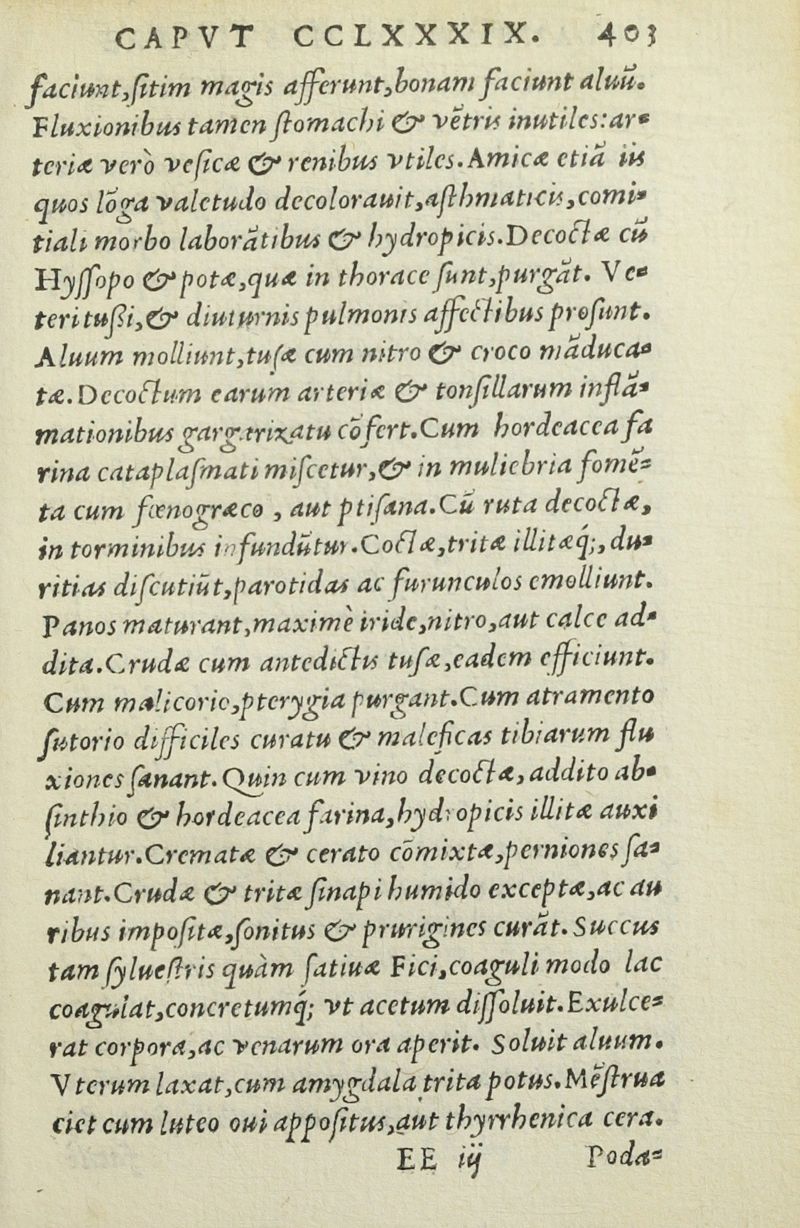 CAPVT CCLXXXIX. 403
faciunt,ſitim magis afferunt,bonam faciunt aluũ.
Fluxionibus tamen ſtomachi & vẽtris inutiles:ar-
teriæ verò veſicæ & renibus vtiles.Amicæ etiã iis
quos lõga valetudo decolorauit,aſthmaticis,comi-
tiali morbo laborãtibus & hydropicis.Decoctæ cũ
Hyſſopo & potæ,quæ in thorace ſunt,purgãt. Ve-
teri tußi,& diuturnis pulmonis affectibus proſunt.
Aluum molliunt,tuſæ cum nitro & croco mãduca-
tæ.Decoctum earum arteriæ & tonſillarum inflã-
mationibus gargarizatu cõfert.Cum hordeacea fa
rina cataplaſmati miſcetur,& in muliebria fomẽ-
ta cum fœnogræco , aut ptiſana.Cũ ruta decoctæ,
in torminibus infundũtur.Coctæ,tritæ illitæq́;,du-
ritias diſcutiũt,parotidas ac furunculos emolliunt.
Panos maturant,maximè iride,nitro,aut calce ad-
dita.Crudæ cum antedictis tuſæ,eadem efficiunt.
Cum malicorio,pterygia purgant.Cum atramento
ſutorio difficiles curatu & maleficas tibiarum flu
xiones ſanant.Quin cum vino decoctæ,addito ab-
ſinthio & hordeacea farina,hydropicis illitæ auxi
liantur.Crematæ & cerato cõmixtæ,perniones ſa-
nant.Crudæ & tritæ ſinapi humido exceptæ,ac au
ribus impoſitæ,ſonitus & prurigines curãt.Succus
tam ſylueſtris quàm ſatiuæ Fici,coaguli modo lac
coagulat,concretumq́; vt acetum diſſoluit.Exulce-
rat corpora,ac venarum ora aperit. Soluit aluum.
Vterum laxat,cum amygdala trita potus.Mẽſtrua
ciet cum luteo oui appoſitus,aut thyrrhenica cera.
EE iij Poda-